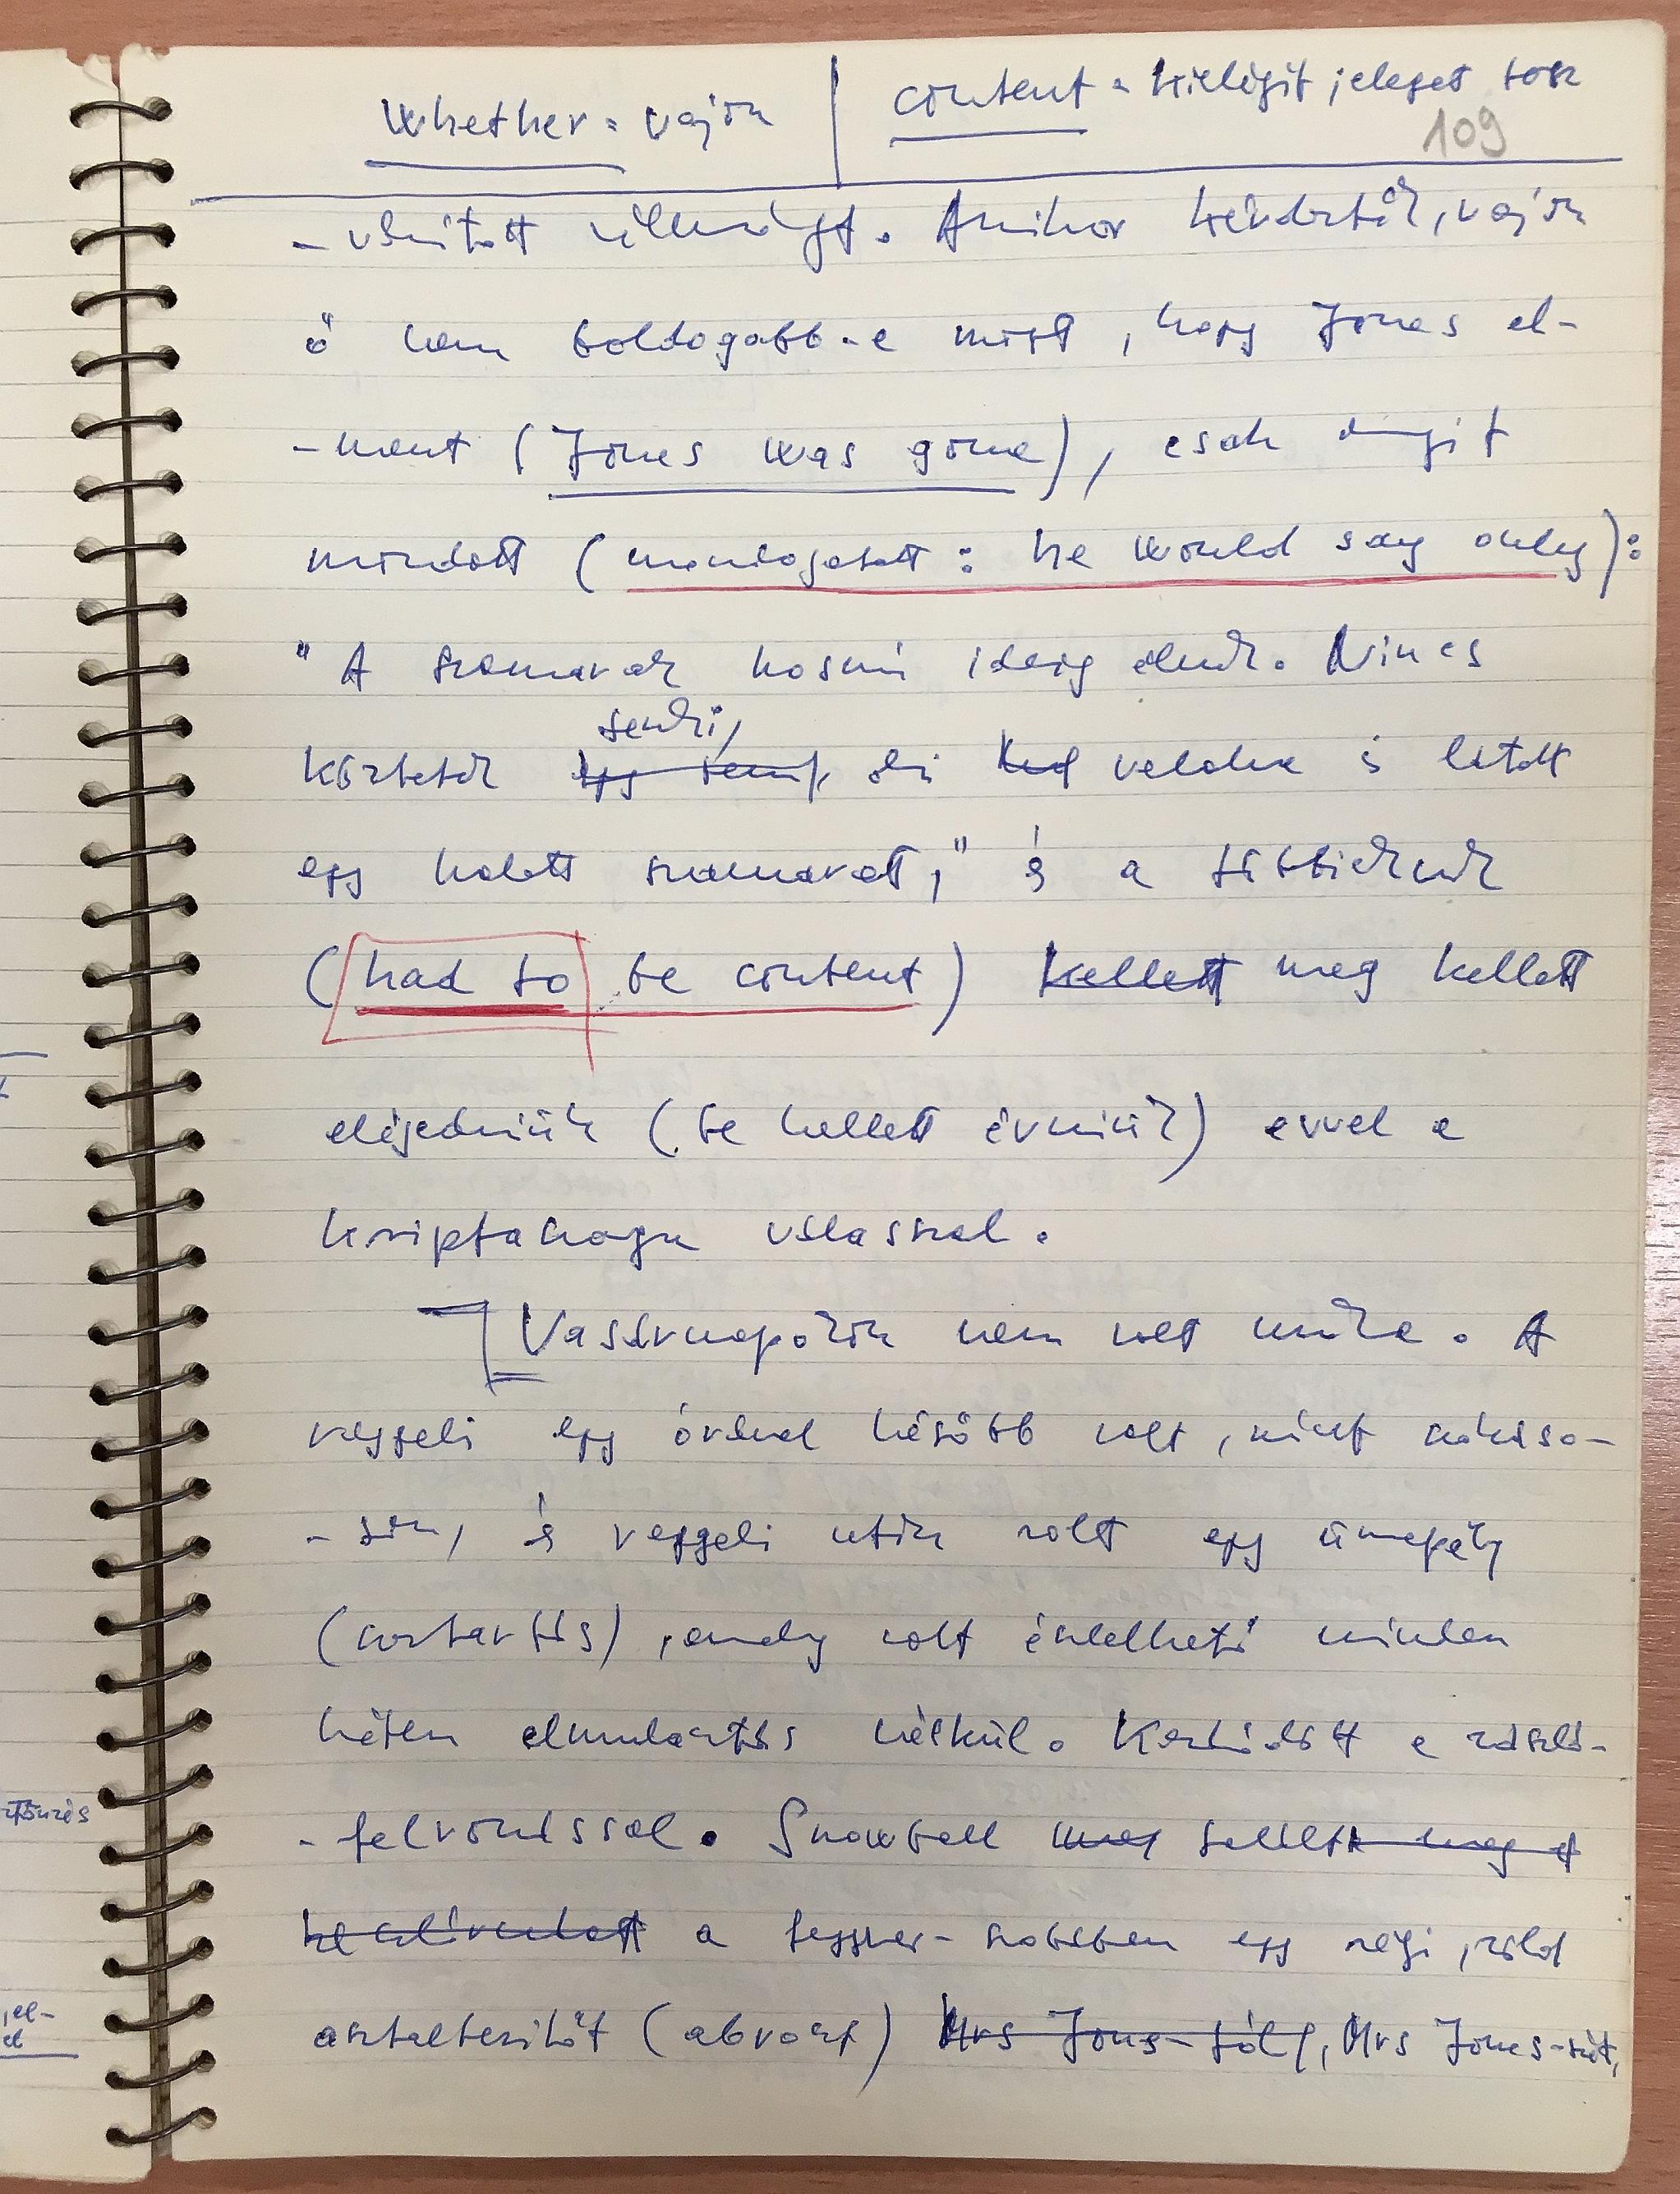 Whether = vajon | content = kielégít; eleget tesz
109
- vánított véleményt. Amikor kérdezték, vajon
ő nem boldogabb-e most, hogy Jones el-
-ment (Jones was gone), csak annyit
mondott (mondogatott: he would say only):
"A szamarak hosszú ideig élnek. Nincs
senki,
köztetek egy senki, aki valaha is látott
egy halott szamarat," és a többieknek
(had to be content) kellett meg kellett
elégedniük (be kellett érniük) evvel a
kriptahangu válasszal.
Vasárnaponk nem volt munka. A
reggeli egy órával később volt, mint szokáso-
- san, és reggeli után volt egy ünnepély
(szertartás), amely volt észlelhető minden
héten elmulasztás nélkül. Kezdődött a zászló-
- felvonással. Snowball meg
a szerszám-szobában egy régi, zöld
asztalterítőt (abroszt) Mrs Jones-tól, Mrs Jones-ét,